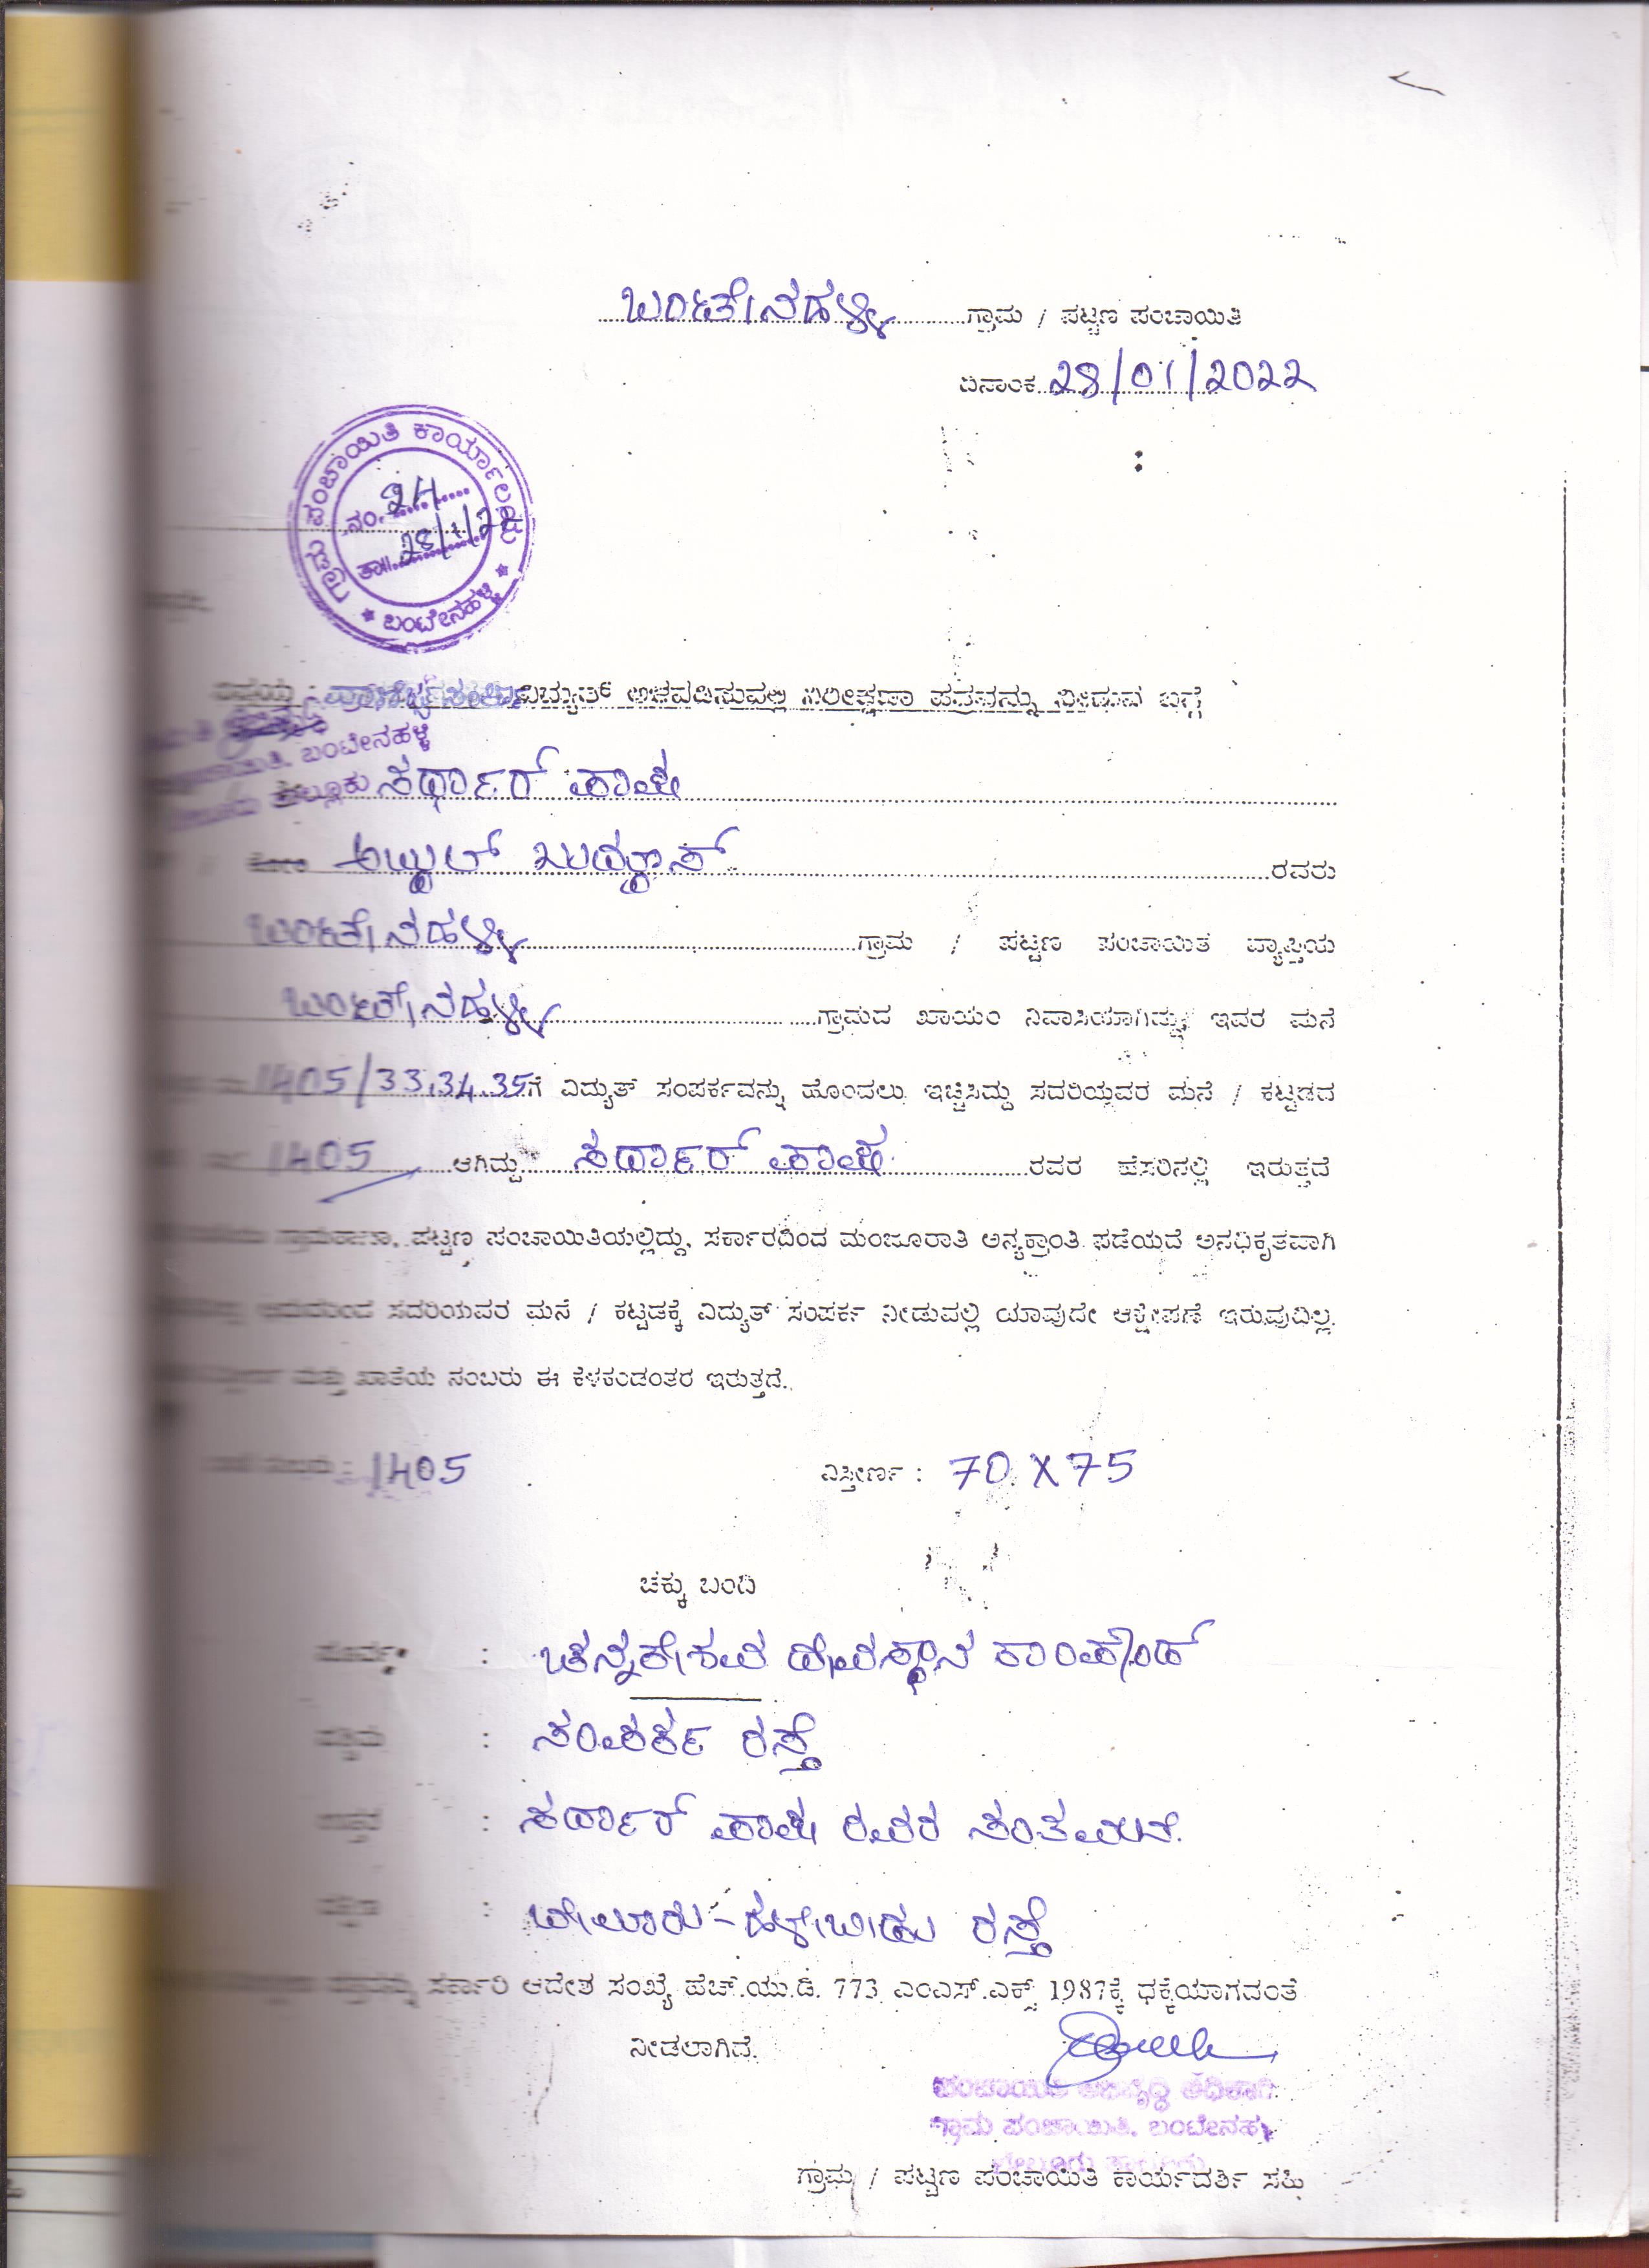 ಬಂಟೇನಹಳ್ಳಿ ಗ್ರಾಮ / ಪಟ್ಟಣ ಪಂಚಾಯಿತಿ
ದಿನಾಂಕ 28/01/2022
ಗ್ರಾಮ ಪಂಚಾಯಿತಿ ಕಾರ್ಯಾಲಯ
ನಂ. 24
ತಾ|| 28/1/22
* ಬಂಟೇನಹಳ್ಳಿ *
ವಿಷಯ : ವಿದ್ಯುತ್ ಅಳವಡಿಸುವಲ್ಲಿ ನಿರೀಕ್ಷಣಾ ಪತ್ರವನ್ನು ನೀಡುವ ಬಗ್ಗೆ
ಬಂಟೇನಹಳ್ಳಿ
ತಾಲ್ಲೂಕು ಸರ್ಧಾರ್ ಪಾಷ
ಅಬ್ದುಲ್ ಖುದ್ದೂಸ್ ರವರು
ಬಂಟೇನಹಳ್ಳಿ ಗ್ರಾಮ / ಪಟ್ಟಣ ಪಂಚಾಯಿತ ವ್ಯಾಪ್ತಿಯ
ಬಂಟೇನಹಳ್ಳಿ ಗ್ರಾಮದ ಖಾಯಂ ನಿವಾಸಿಯಾಗಿದ್ದು, ಇವರ ಮನೆ
1405/33,34,35ಗೆ ವಿದ್ಯುತ್ ಸಂಪರ್ಕವನ್ನು ಹೊಂದಲು ಇಚ್ಚಿಸಿದ್ದು ಸದರಿಯವರ ಮನೆ / ಕಟ್ಟಡದ
1405 ಆಗಿದ್ದು ಸರ್ದಾರ್ ಪಾಷ ರವರ ಹೆಸರಿನಲ್ಲಿ ಇರುತ್ತದೆ
ಗ್ರಾಮಠಾಣಾ, ಪಟ್ಟಣ ಪಂಚಾಯಿತಿಯಲ್ಲಿದ್ದು, ಸರ್ಕಾರದಿಂದ ಮಂಜೂರಾತಿ ಅನ್ಯಕ್ರಾಂತಿ ಪಡೆಯದೆ ಅನಧಿಕೃತವಾಗಿ
ಆದುದರಿಂದ ಸದರಿಯವರ ಮನೆ / ಕಟ್ಟಡಕ್ಕೆ ವಿದ್ಯುತ್ ಸಂಪರ್ಕ ನೀಡುವಲ್ಲಿ ಯಾವುದೇ ಆಕ್ಷೇಪಣೆ ಇರುವುದಿಲ್ಲ.
ಮತ್ತು ಖಾತೆಯ ನಂಬರು ಈ ಕೆಳಕಂಡಂತರ ಇರುತ್ತದೆ.
1405 ವಿಸ್ತೀರ್ಣ : 70 X 75
ಚಕ್ಕು ಬಂದಿ
ಪೂರ್ವ : ಚನ್ನಕೇಶವ ದೇವಸ್ಥಾನ ಕಾಂಪೌಂಡ್
ಪಶ್ಚಿಮ : ಸಂಪರ್ಕ ರಸ್ತೆ
ಉತ್ತರ : ಸರ್ದಾರ್ ಪಾಷ ರವರ
: ಬೇಲೂರು-ಹಳೇಬೀಡು ರಸ್ತೆ
ಪತ್ರವನ್ನು ಸರ್ಕಾರಿ ಆದೇಶ ಸಂಖ್ಯೆ ಹೆಚ್.ಯು.ಡಿ. 773 ಎಂಎಸ್.ಎಕ್ಸ್ 1987ಕ್ಕೆ ಧಕ್ಕೆಯಾಗದಂತೆ
ನೀಡಲಾಗಿದೆ.
ಪಂಚಾಯಿತಿ ಅಭಿವೃದ್ಧಿ ಅಧಿಕಾರಿ
ಗ್ರಾಮ ಪಂಚಾಯಿತಿ, ಬಂಟೇನಹಳ್ಳಿ
ಗ್ರಾಮ / ಪಟ್ಟಣ ಪಂಚಾಯಿತಿ ಕಾರ್ಯದರ್ಶಿ ಸಹಿ